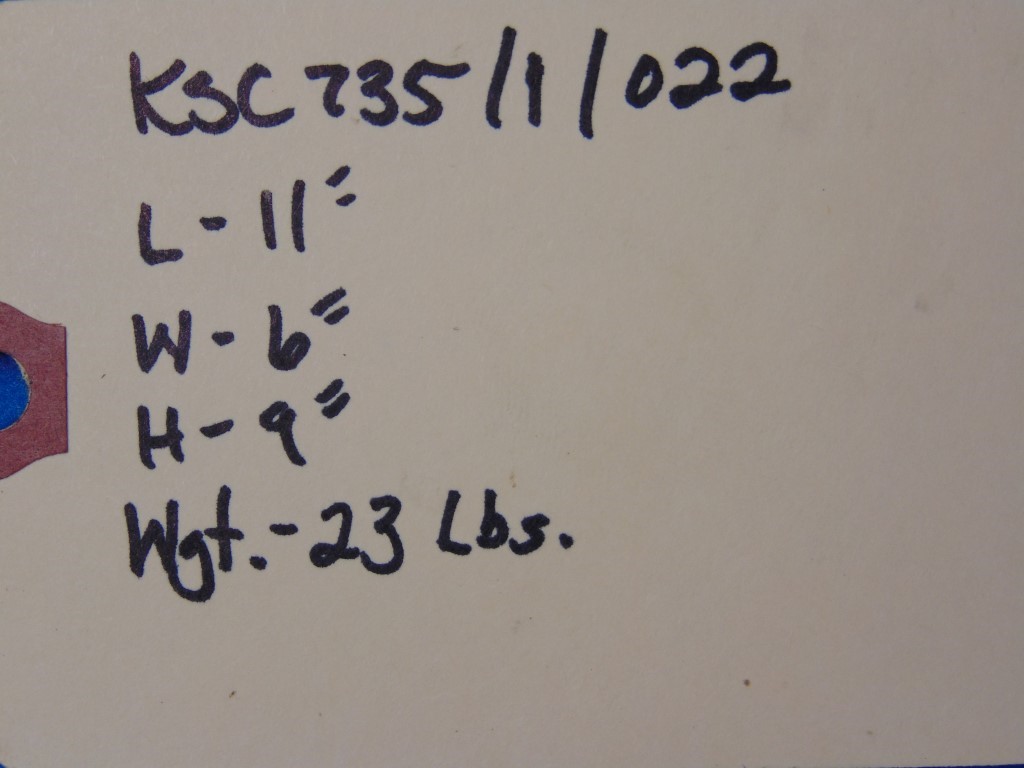 KSC735/1/022
L - 11"
W - 6"
H - 9"
Wgt. - 23 Lbs.